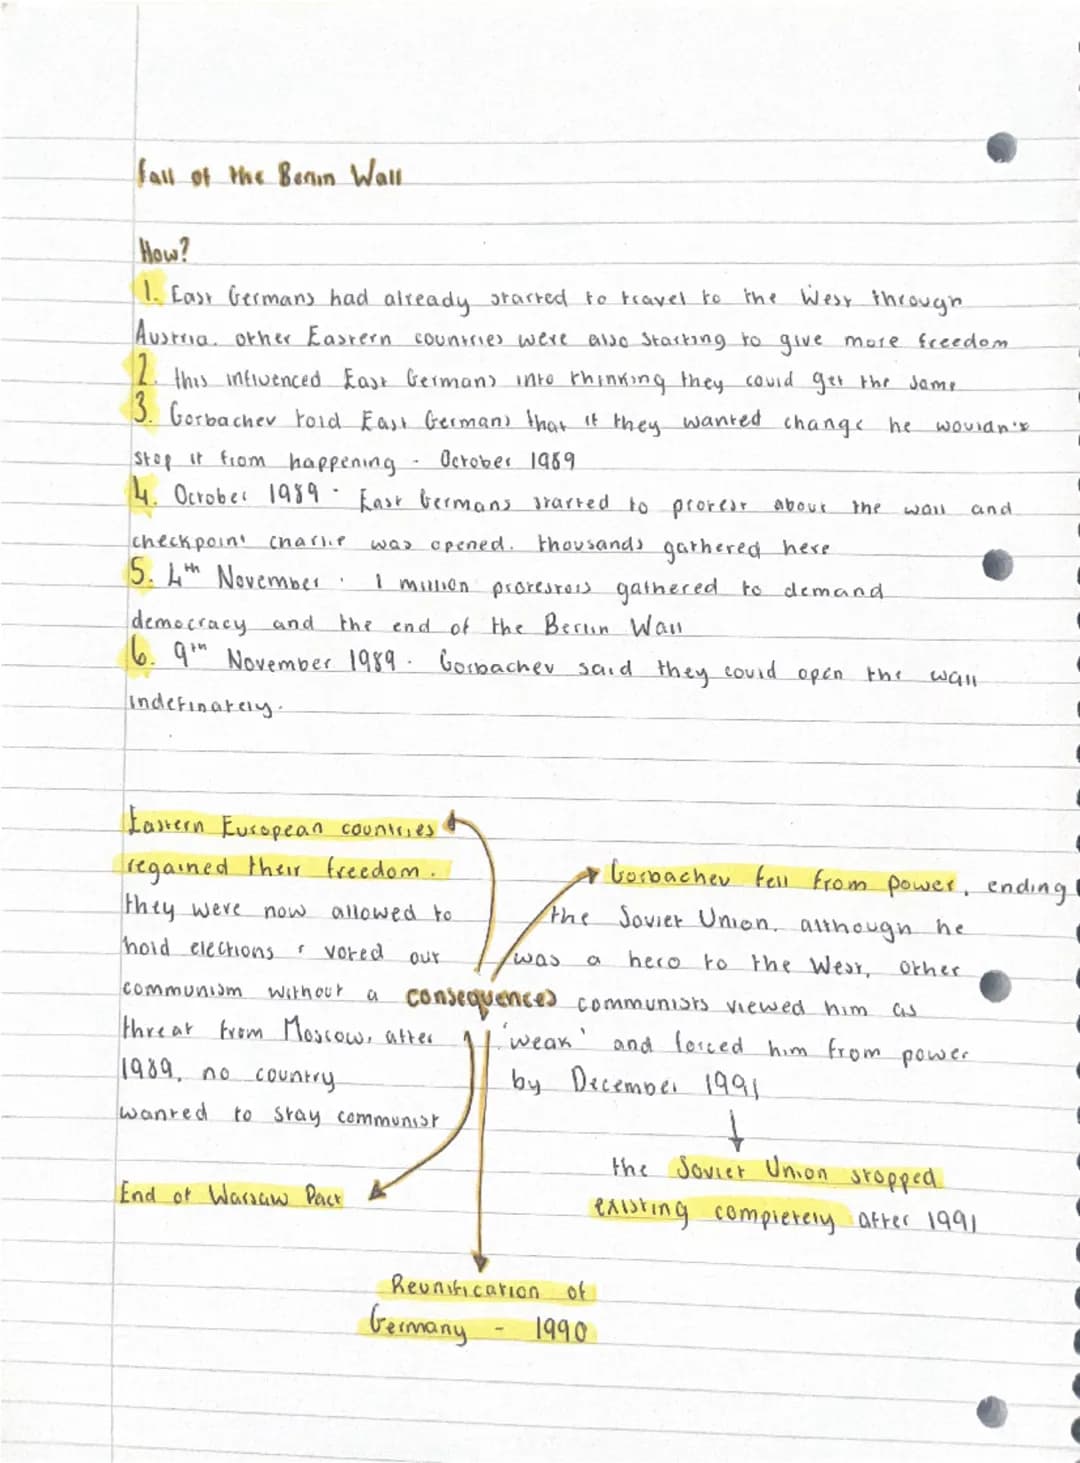 Fall of the Berlin Wall
How?
1. East Germans had already started to travel to the West through
Austria. other Eastern countries were also starting to give more freedom
2. this influenced East Germans into thinking they could get the same
3. Gorbachev told East Germans that if they wanted change he wouldn't
stop it from happening - October 1989
4. October 1989 - East Germans started to protest about the wall and
checkpoint charlie was opened. thousands gathered here
5. 4th November - 1 million protestors gathered to demand
democracy and the end of the Berlin Wall
6. 9th November 1989 - Gorbachev said they could open the wall
indefinately.
Eastern European countries
regained their freedom.
they were now allowed to
hold elections & voted out
communism without a
threat from Moscow. after
1989, no country
wanted to stay communist
consequences
Gorbachev fell from power, ending
the Soviet Union. although he
was a hero to the West, other
communists viewed him as
'weak' and forced him from power
by December 1991
the Soviet Union stopped
existing completely after 1991
End of Warsaw Pact
Reunification of
Germany - 1990